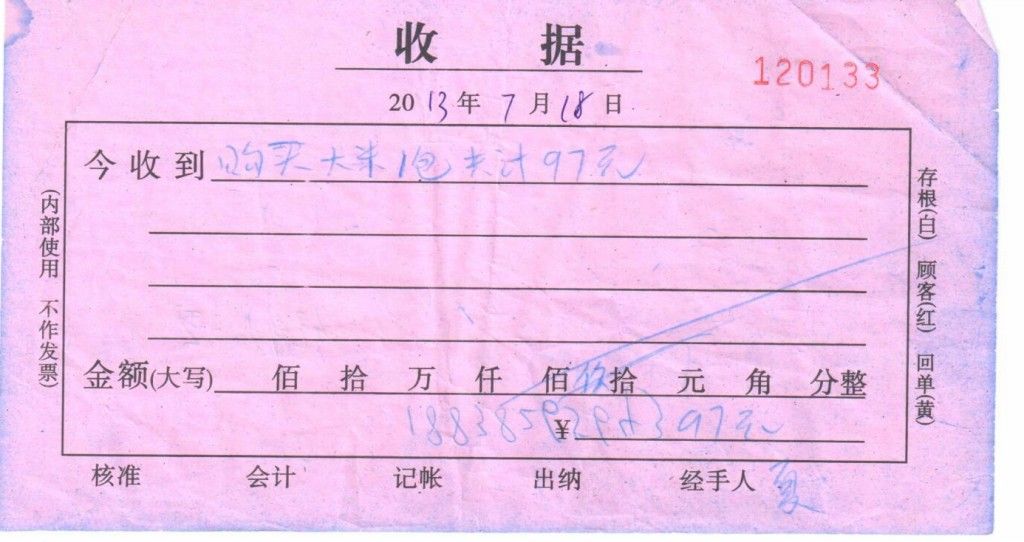 收 据
120133
2013年7月18日
今收到 购买大米1包共计97元
金额(大写) 佰 拾 万 仟 佰 玖拾 元 角 分整
¥ 97元
核准 会计 记帐 出纳 经手人 夏
(内部使用 不作发票)
存根(白) 顾客(红) 回单(黄)